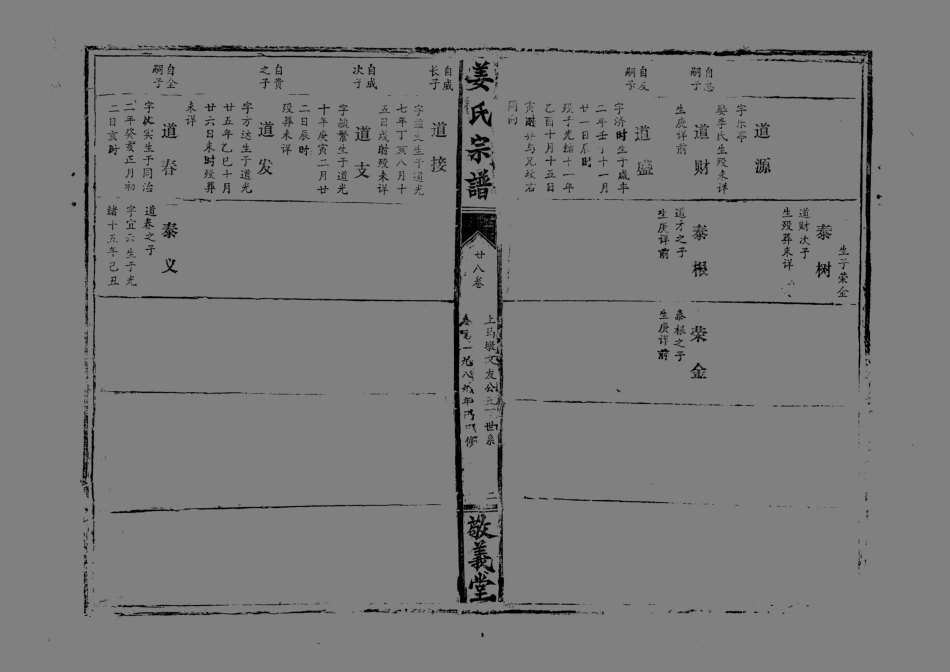 生子荣金
道源
字乐亭
娶李氏生殁未详
泰树
道财次子
生殁葬未详
自忠
嗣子
道财
生庚详前
泰根
道才之子
生庚详前
荣金
泰根之子
生庚详前
自友
嗣子
道盛
字济时生于咸丰
二年壬子十一月
廿一日辰时
殁于光绪十一年
乙酉十月十五日
寅时葬与兄坟右
姜氏宗譜
廿八卷
上马墩文友公
世系
二
敬義堂
自成
长子
道接
生于道光
七年丁亥八月十
五日戌时殁未详
自成
次子
道支
字毓繁生于道光
十年庚寅二月廿
二日辰时
殁葬未详
自贵
之子
道发
字方达生于道光
廿五年乙巳十月
廿六日未时殁葬
未详
自全
嗣子
道春
字 实生于同治
二年癸亥正月初
二日亥时
泰义
道春之子
字宜 生于光
绪十五年己丑